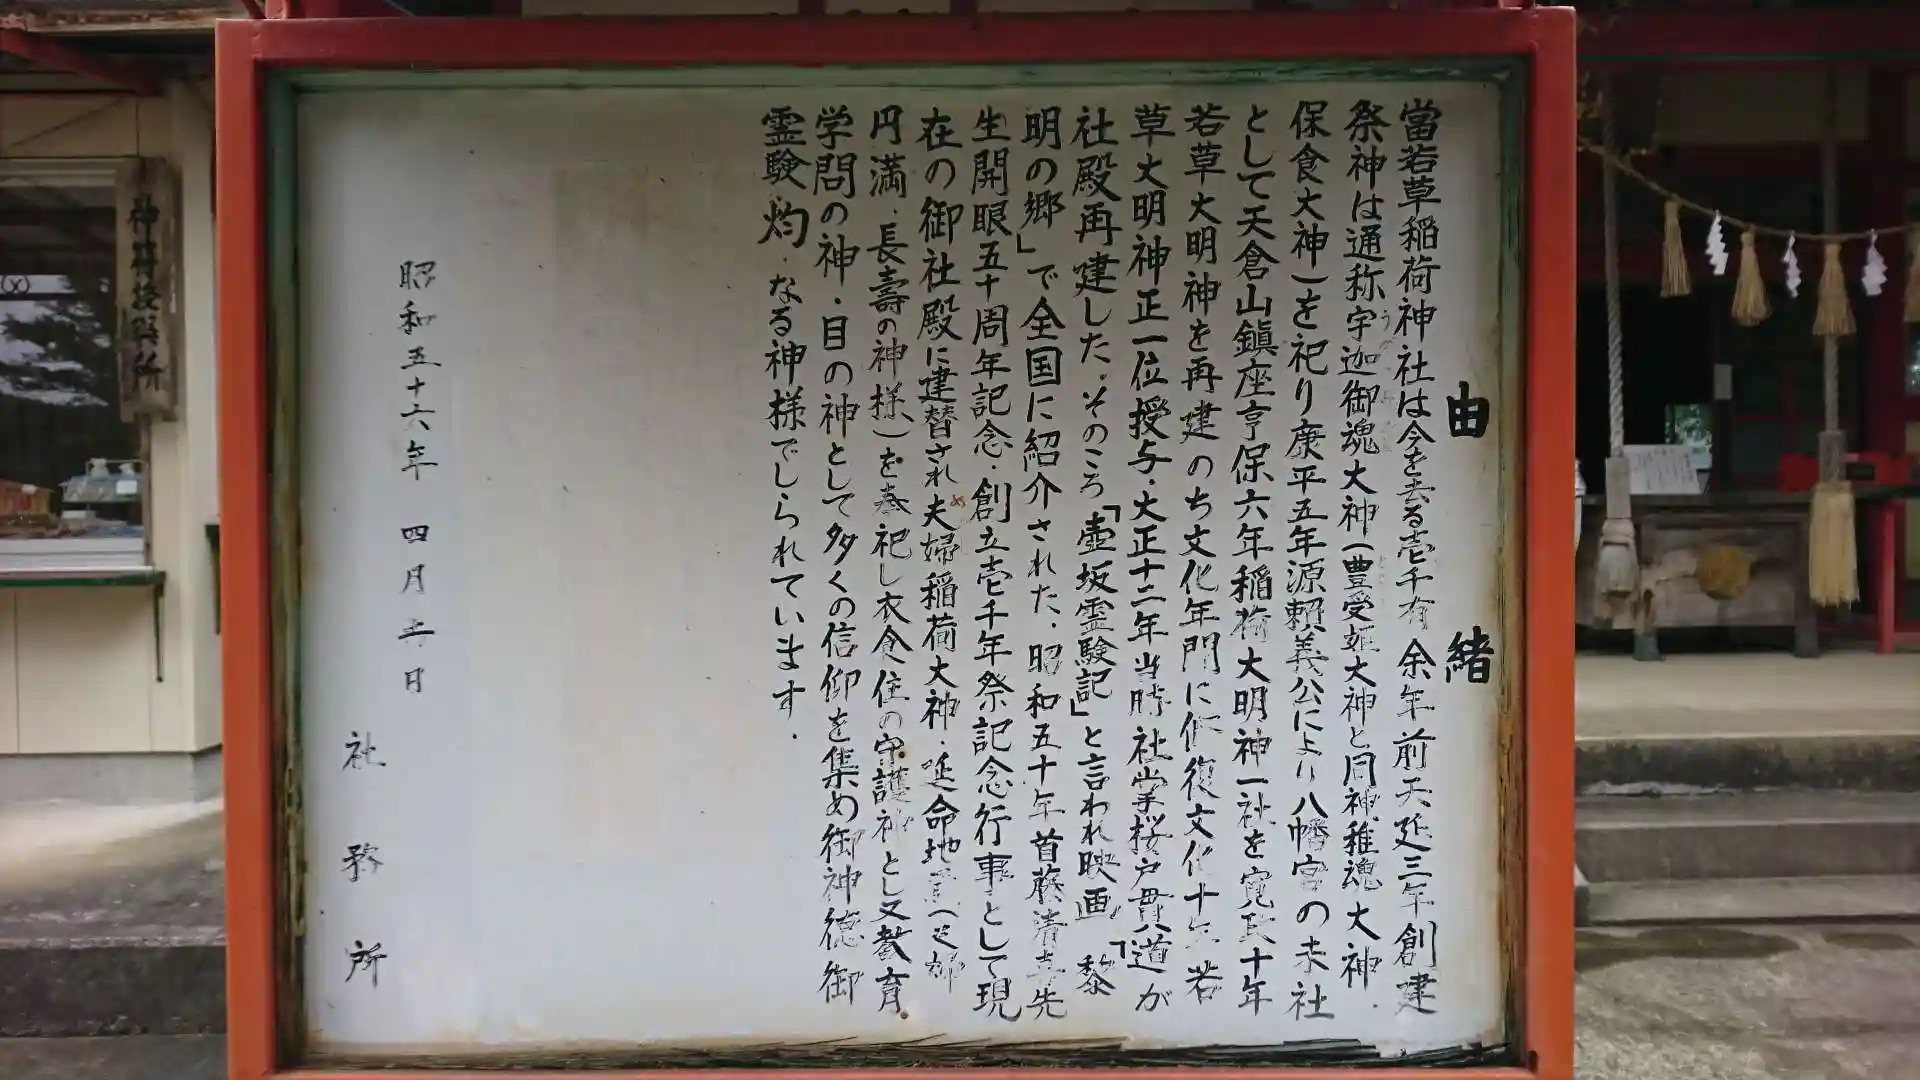 由緒
當若草稲荷神社は今を去る壱千有余年前天延三年創建
祭神は通称宇迦御魂大神(豊受姫大神と同神稚魂大神.
保食大神)を祀り康平五年源頼義公により八幡宮の末社
として天倉山鎮座亨保六年稲荷大明神一社を寛政十年
若草大明神を再建のち文化年間に修復文化十年若
草大明神正一位授与.大正十二年当時社掌桜戸貫道が
社殿再建した.そのころ「壺坂霊験記」と言われ映画「黎
明の郷」で全国に紹介された.昭和五十年首藤清喜先
生開眼五十周年記念.創立壱千年祭記念行事として現
在の御社殿に建替され夫婦稲荷大神.延命地蔵(夫婦
円満.長壽の神様)を奉祀し衣食住の守護神とし又教育.
学問の神.目の神として多くの信仰を集め御神徳御
霊験灼.なる神様でしられています.
昭和五十六年 四月 日
社務所
神符授与所